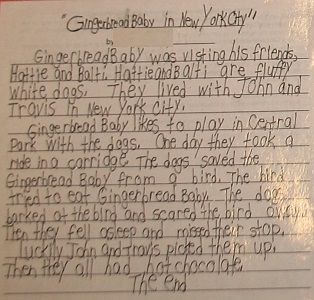 "Gingerbread Baby in New York City"
by
Gingerbread Baby was visting his friends,
Hattie and Balti. Hattie and Balti are fluffy
white dogs. They lived with John and
Travis in New York City.
Gingerbread Baby likes to play in Central
Park with the dogs. One day they took a
ride in a carriage. The dogs saved the
Gingerbread Baby from a bird. The bird
tried to eat Gingerbread Baby. The dogs
barked at the bird and scared the bird away.
Then they fell asleep and missed their stop.
Luckily John and Travis picked them up.
Then they all had hot chocolate.
The end